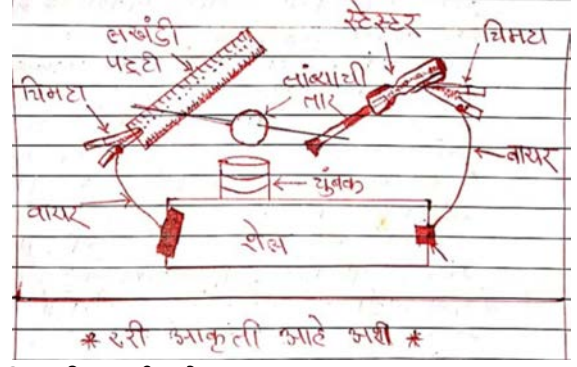 लखंडी
पट्टी
स्टेस्टर
चिमटा
चिमटा
तांब्याची
तार
वायर
चुंबक
वायर
शेल
* खरी आकृती आहे अशी *